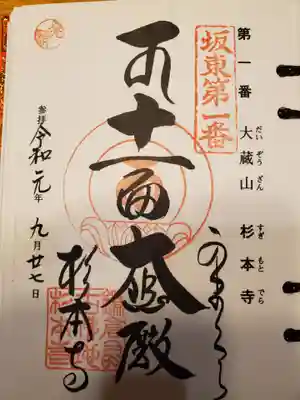 第一番 大蔵山 杉本寺
だい ぞう ざん すぎ もと でら
坂東第一番
かまくら
十一面大悲殿
杉本寺
参拝 令和元年 九月廿七日